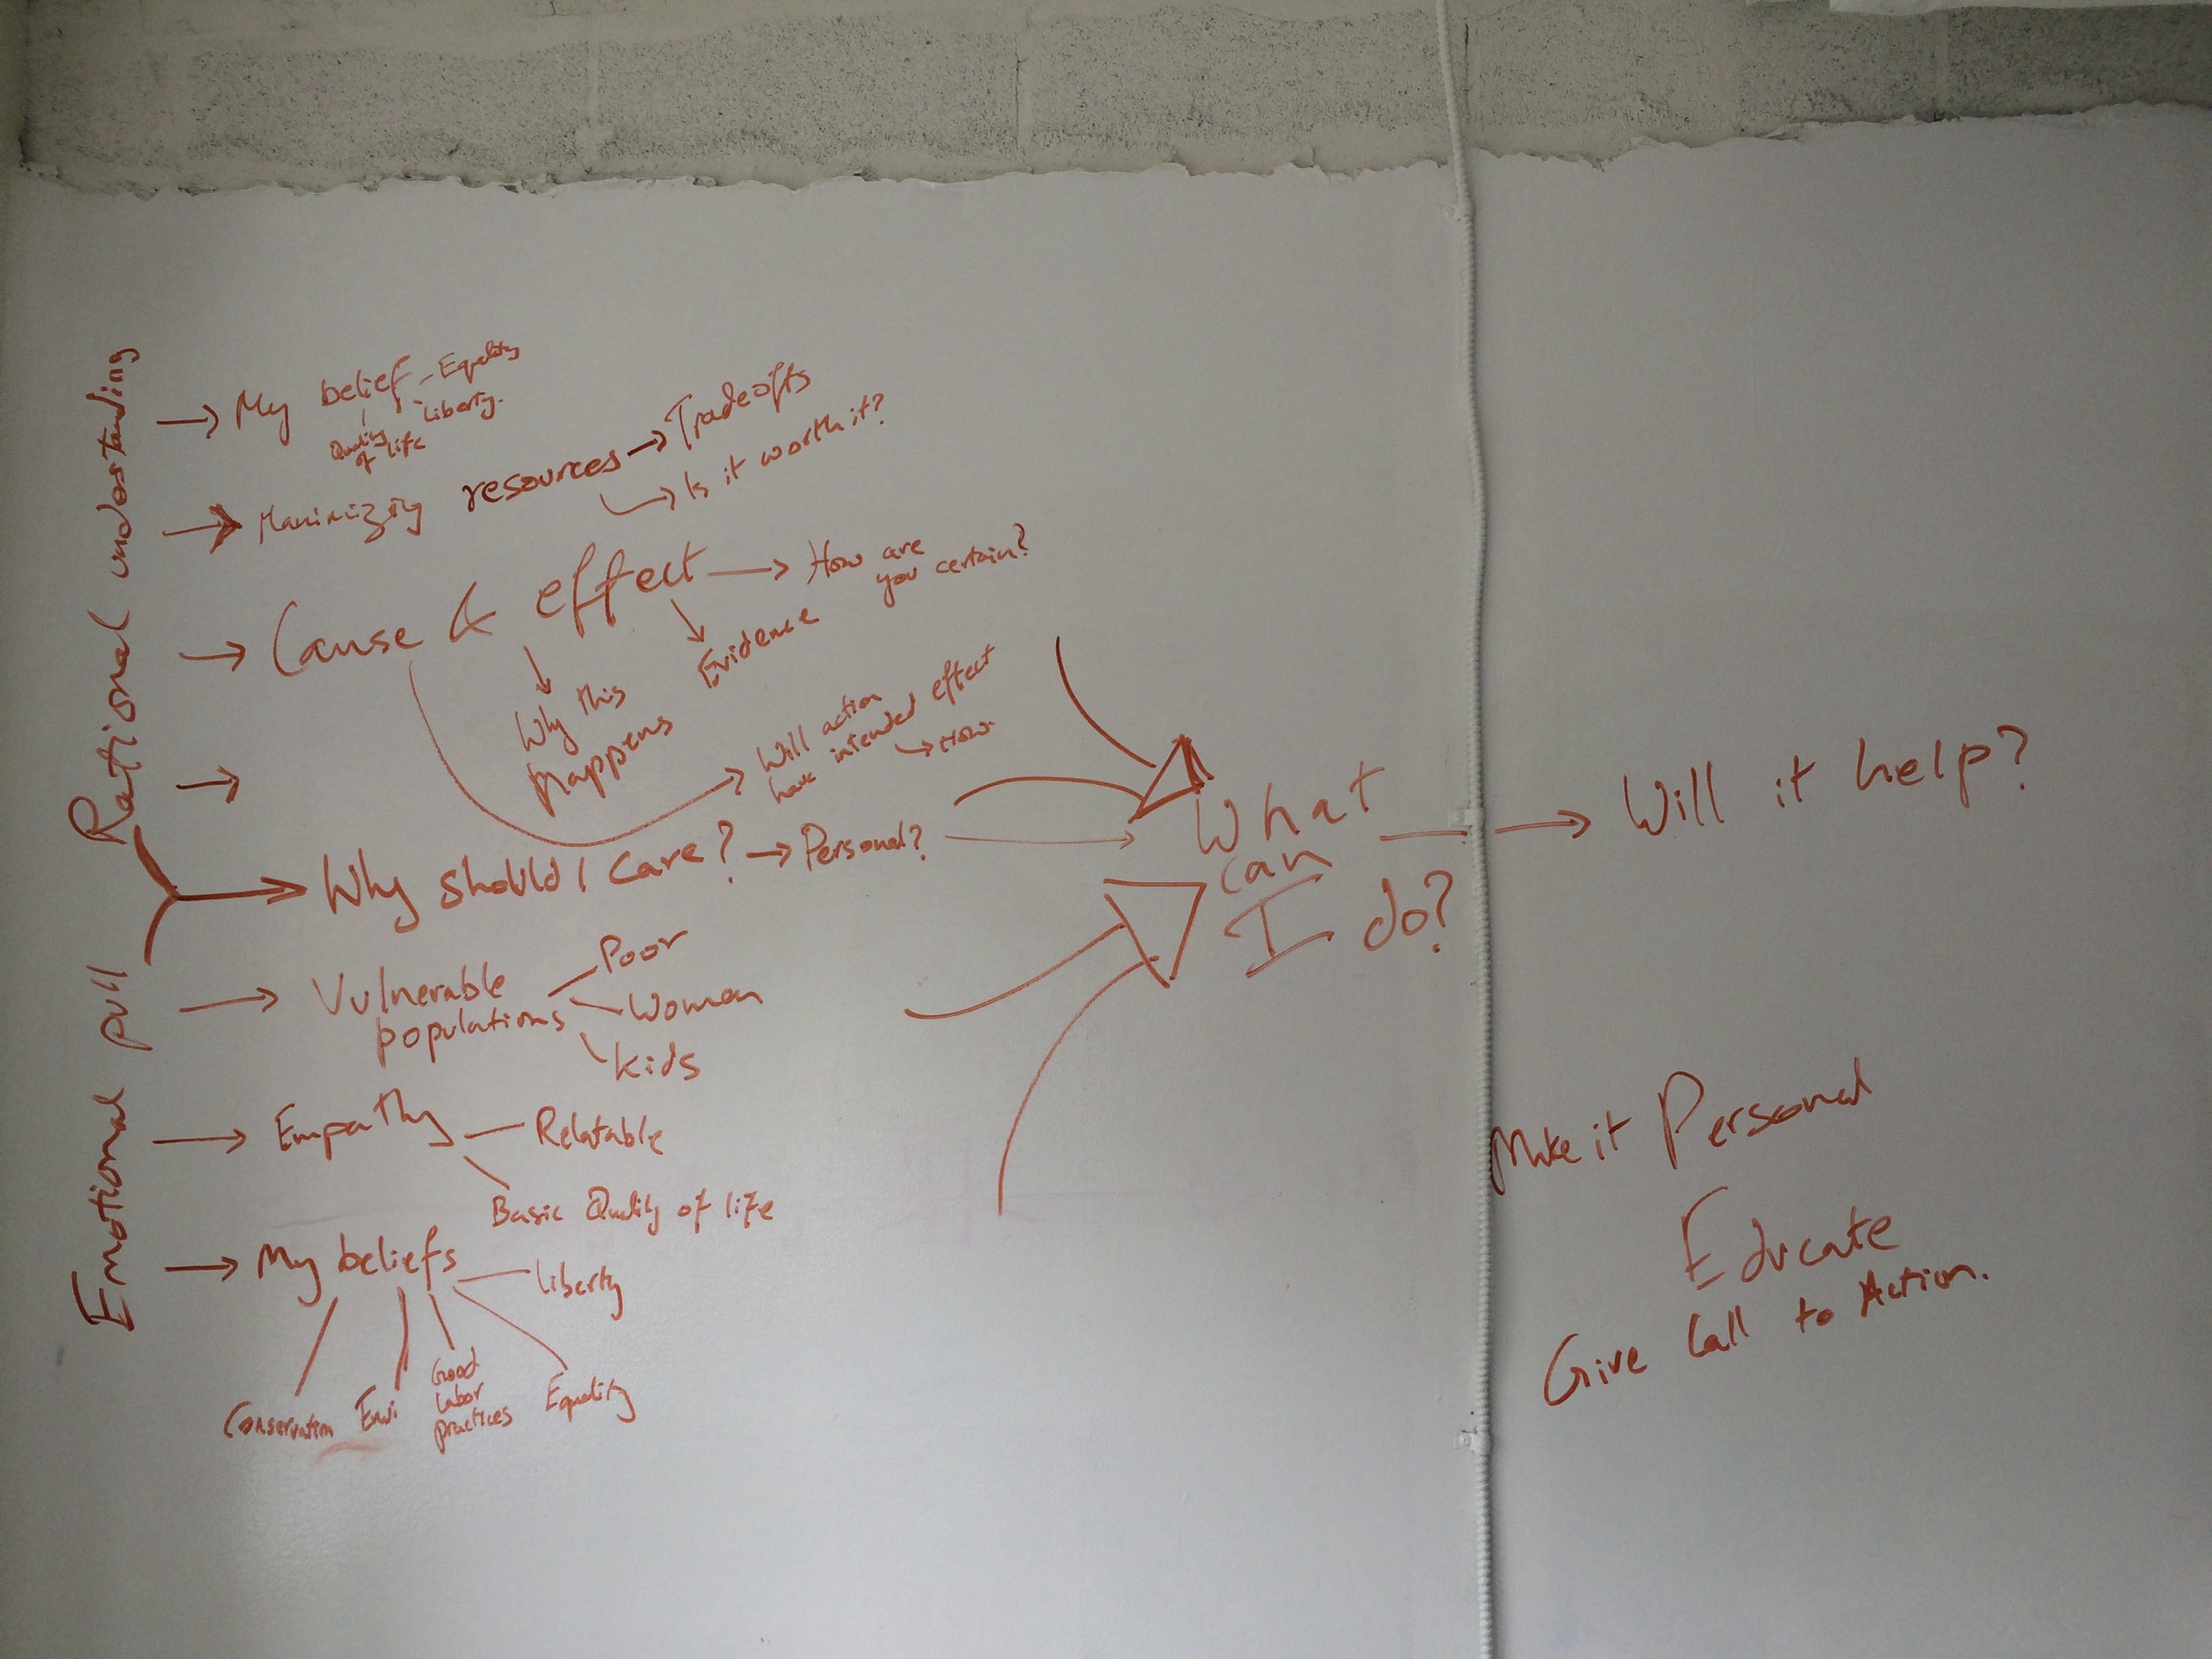 Rational understanding
My belief - Equality
- Liberty.
Quality
of life
Maximizing resources → Tradeofts
→ Is it worth it?
Cause & effect → How are
you certain?
Evidence
Why this
happens
Will action
have intended effect
→ How.
Why should I care? → Personal?
What
can
I do?
→ Will it help?
Emotional pull
Vulnerable
populations
Poor
Women
Kids
Empathy
Relatable
Basic Quality of life
My beliefs
Liberty
Conservation
Envi
Good
labor
practices
Equality
Make it Personal
Educate
Give Call to Action.